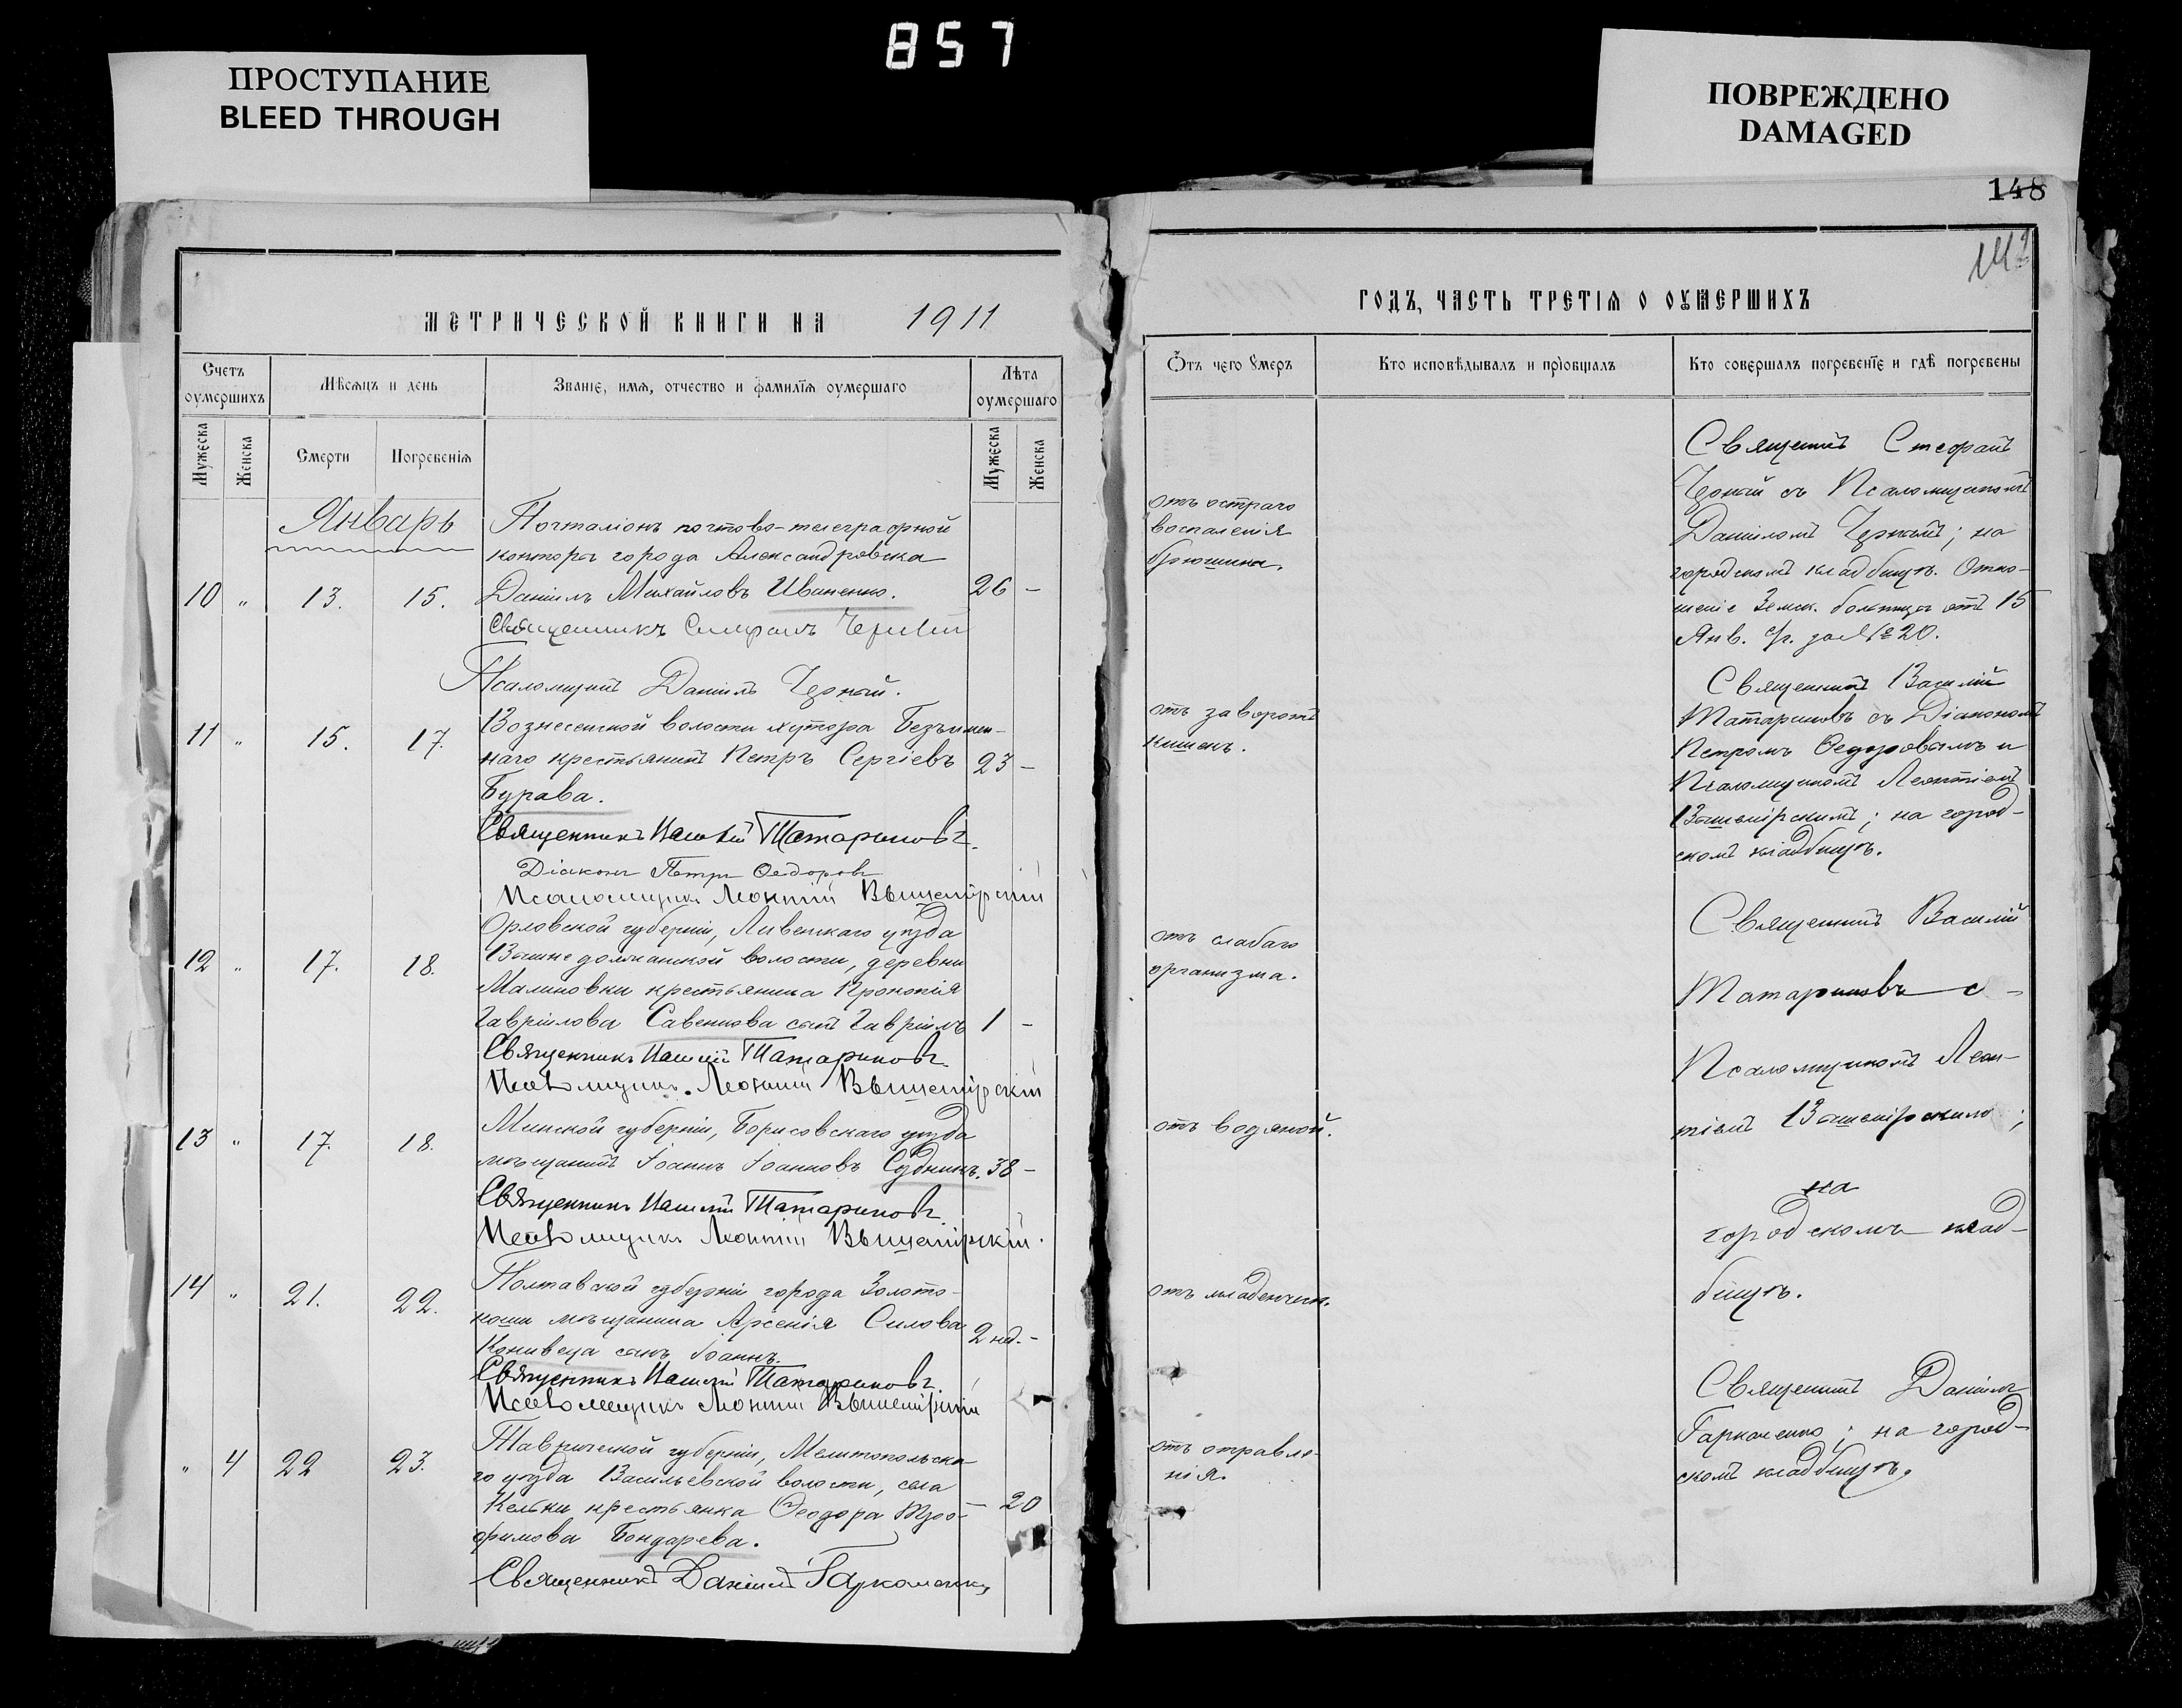 857
ПРОСТУПАНИЕ
BLEED THROUGH
ПОВРЕЖДЕНО
DAMAGED
148
МЕТРИЧЕСКОЙ КНИГИ НА 1911
Счетъ оумершихъ
Мѣсяцъ и день
Званіе, имя, отчество и фамилія оумершаго
Лѣта оумершаго
Мужеска
Женска
Смерти
Погребенія
Мужеска
Женска
Январь
Почталіонъ почтово-телеграфной
конторы города Александровска
10 " 13. 15. Даніилъ Михайловъ Иваненко. 26 -
Священникъ Стефанъ Черный
Псаломщикъ Даніилъ Черный.
Вознесенской волости хутора Безъимен-
11 " 15. 17. наго крестьянинъ Петръ Сергіевъ 23 -
Бурава.
Священникъ Василій Татариновъ.
Діаконъ Петръ Ѳеодоровъ
Псаломщикъ Леонтій Вышемірскій
Орловской губерніи, Ливенскаго уѣзда
12 " 17. 18. волости, деревни
Малиновки крестьянина Прокопія
Гавріилова Савенкова сынъ Гавріилъ 1 -
Священникъ Василій Татариновъ.
Псаломщикъ Леонтій Вышемірскій
Минской губерніи, Борисовскаго уѣзда
13 " 17. 18. мѣщанинъ Іоаннъ Іоанновъ Судникъ. 38 -
Священникъ Василій Татариновъ.
Псаломщикъ Леонтій Вышемірскій.
Полтавской губерніи города Золото-
14 " 21. 22. ноши мѣщанина Арсенія Силова 2 нед. -
Конивеца сынъ Іоаннъ.
Священникъ Василій Татариновъ.
Псаломщикъ Леонтій Вышемірскій
Таврической губерніи, Мелитопольска-
" 4 22 23. го уѣзда Васильевской волости, села
крестьянка Ѳеодора Тро- - 20
фимова Бондарева.
Священникъ Даніилъ Гаркоменко
ГОДЪ, ЧАСТЬ ТРЕТІЯ О ОУМЕРШИХЪ
Отъ чего умеръ
Кто исповѣдывалъ и пріобщалъ
Кто совершалъ погребеніе и гдѣ погребены
отъ остраго
воспаленія
брюшины.
Священникъ Стефанъ
Черный съ Псаломщикомъ
Даніиломъ Чернымъ; на
городскомъ кладбищѣ. Отно-
шеніе Земск. больницы отъ 15
Янв. с/г. за № 20.
отъ заворота
кишекъ.
Священникъ Василій
Татариновъ съ Діакономъ
Петромъ Ѳеодоровымъ и
Псаломщикомъ Леонтіемъ
Вышемірскимъ; на город-
скомъ кладбищѣ.
отъ слабаго
организма.
отъ водяной.
отъ младенческ.
Священникъ Василій
Татариновъ с
Псаломщикомъ Леон-
тіемъ Вышемірскимъ;
на
городскомъ клад-
бищѣ.
отъ отравле-
нія.
Священникъ Даніилъ
Гаркоменко; на город-
скомъ кладбищѣ.